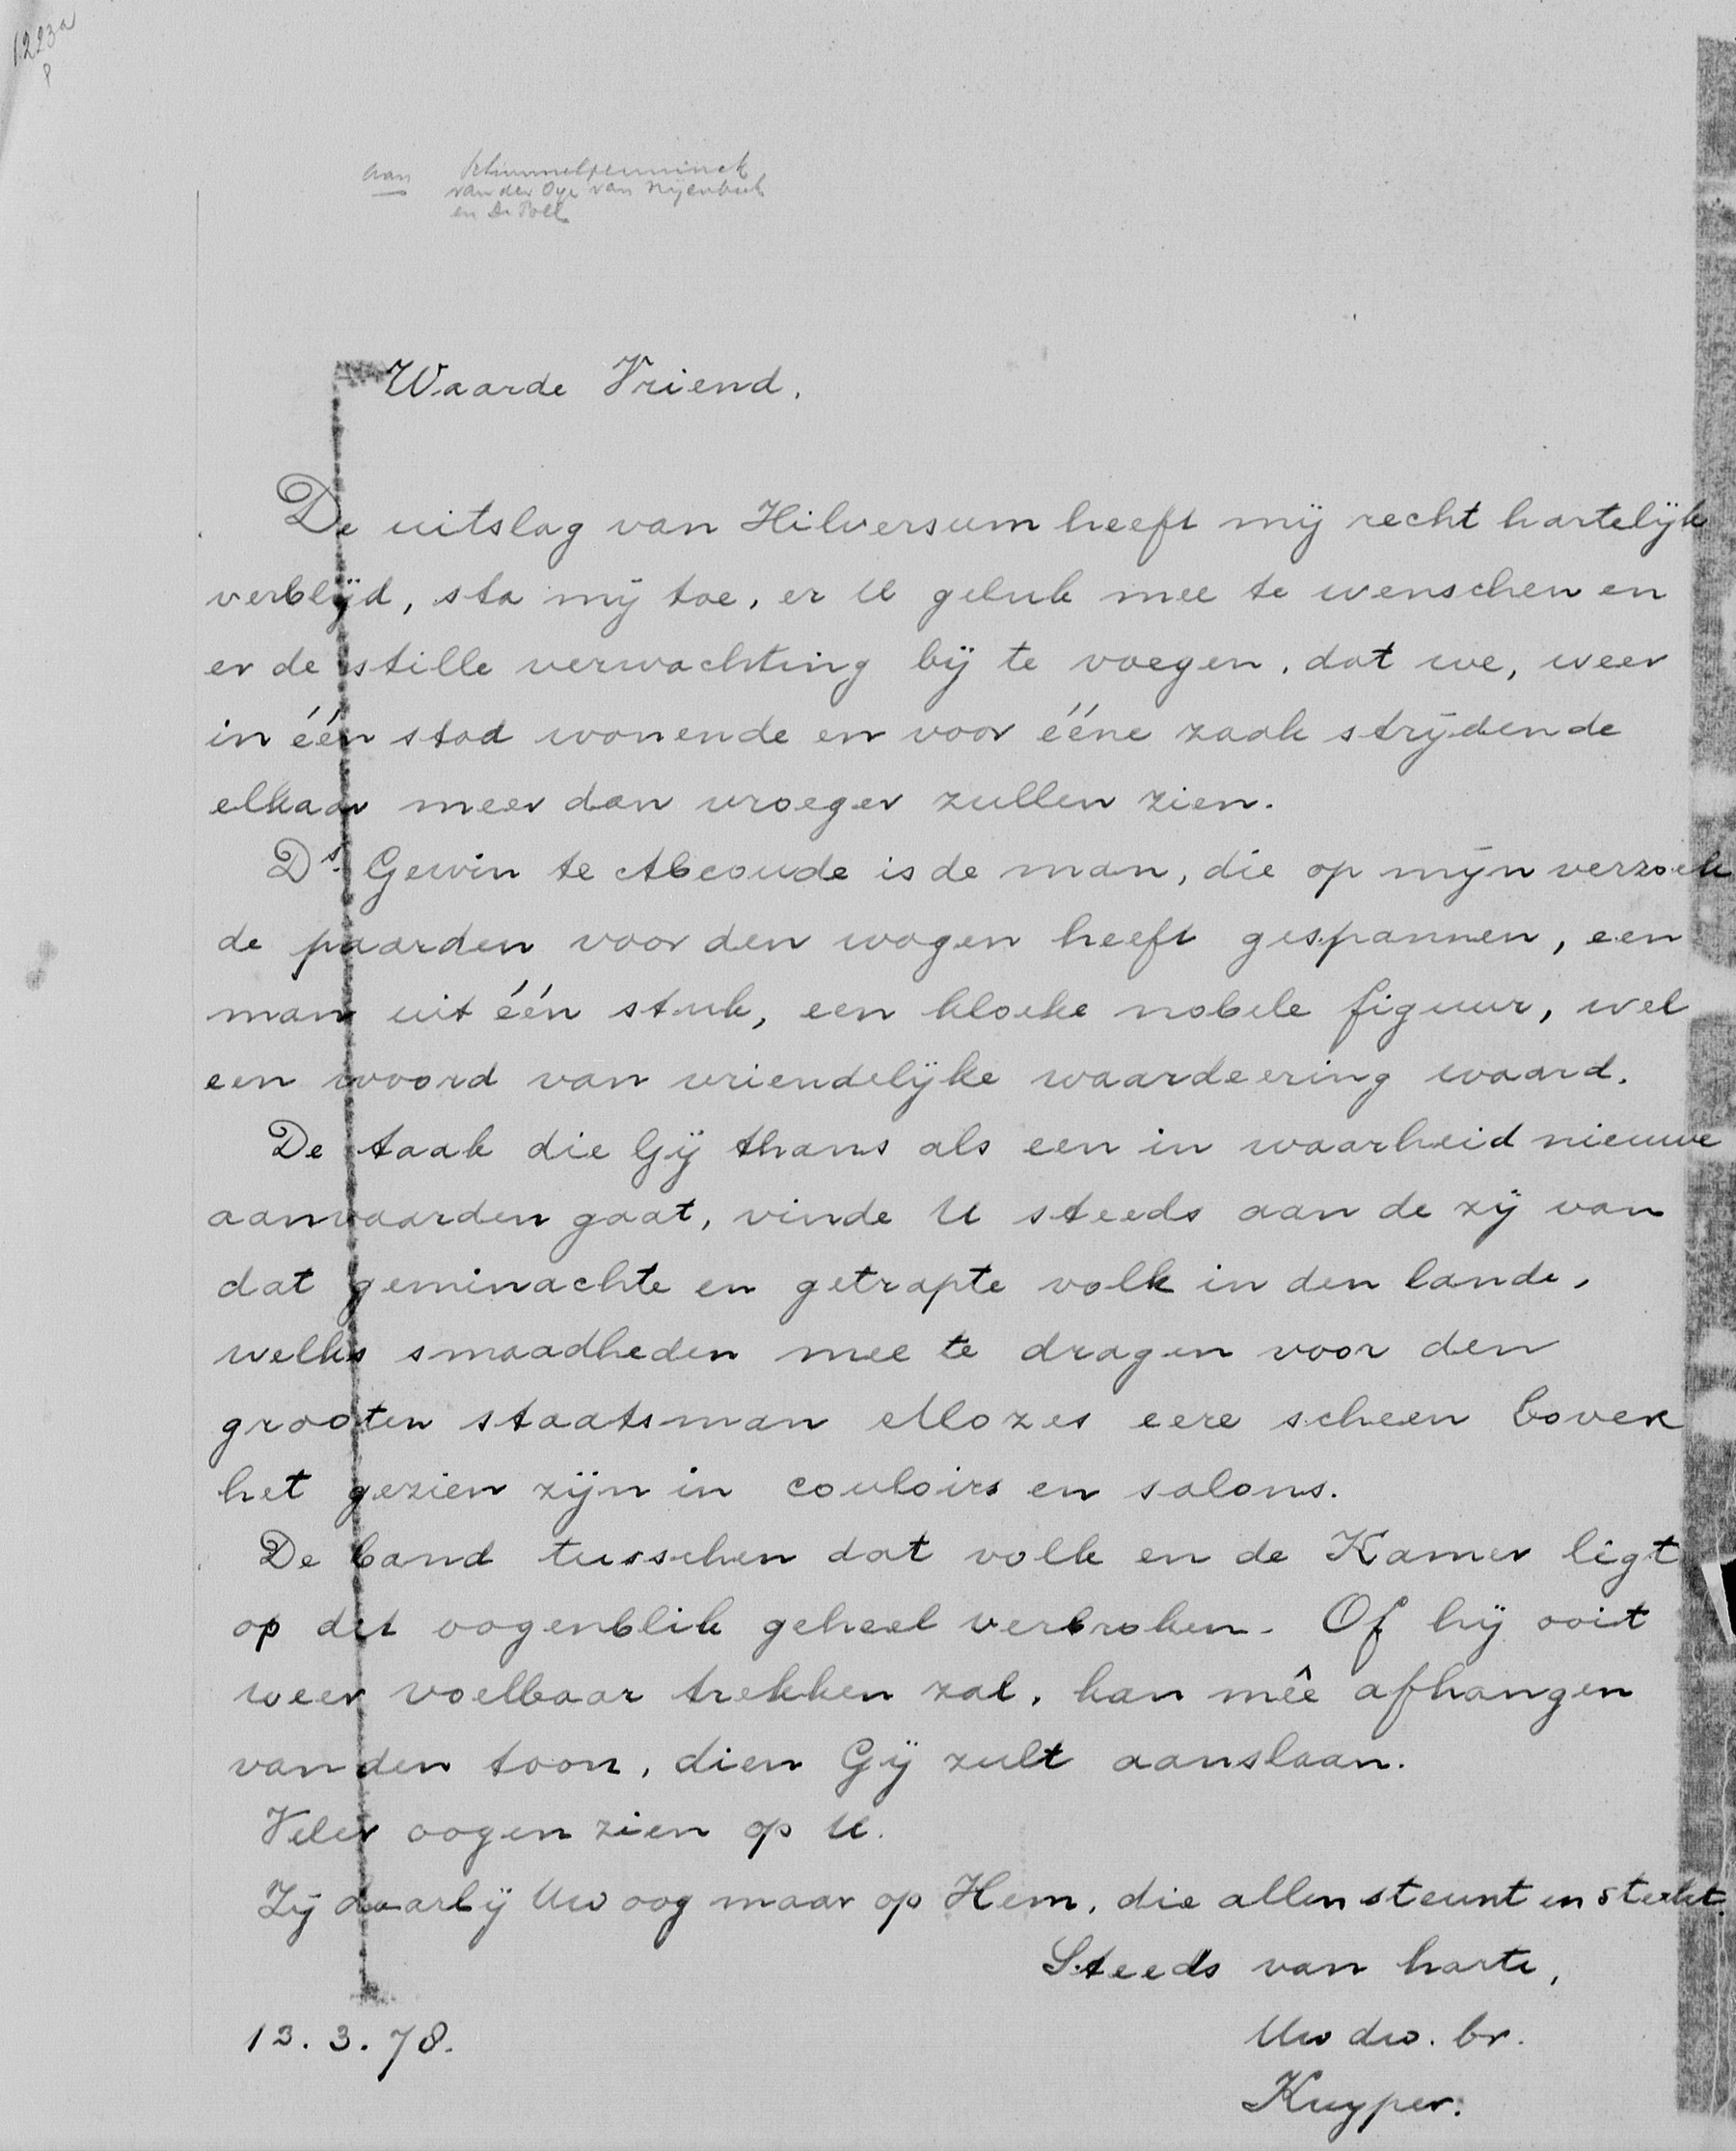 1223a
P
aan Schimmelpenninck
van der Oye van Nijenbeek
en De Poll
Waarde Vriend,
De uitslag van Hilversum heeft mij recht hartelijk
verblijd, sta mij toe, er U geluk mee te wenschen en
er de stille verwachting bij te voegen, dat we, weer
in één stad wonende en voor ééne zaak strijdende
elkaar meer dan vroeger zullen zien.
Ds. Gewin te Abcoude is de man, die op mijn verzoek
de paarden voor den wagen heeft gespannen, een
man uit één stuk, een kloeke nobele figuur, wel
een woord van vriendelijke waardeering waard.
De taak die Gij thans als een in waarheid nieuwe
aanvaarden gaat, vinde U steeds aan de zij van
dat geminachte en getrapte volk in den lande,
welks smaadheden mee te dragen voor den
grooten staatsman Mozes eere scheen boven
het gezien zijn in couloirs en salons.
De band tusschen dat volk en de Kamer ligt
op dit oogenblik geheel verbroken. Of hij ooit
weer voelbaar trekken zal, kan mêe afhangen
van den toon, dien Gij zult aanslaan.
Veler oogen zien op U.
Zij daarbij Uw oog maar op Hem, die allen steunt en sterkt.
Steeds van harte,
Uw dw. br.
Kuyper.
13.3.78.